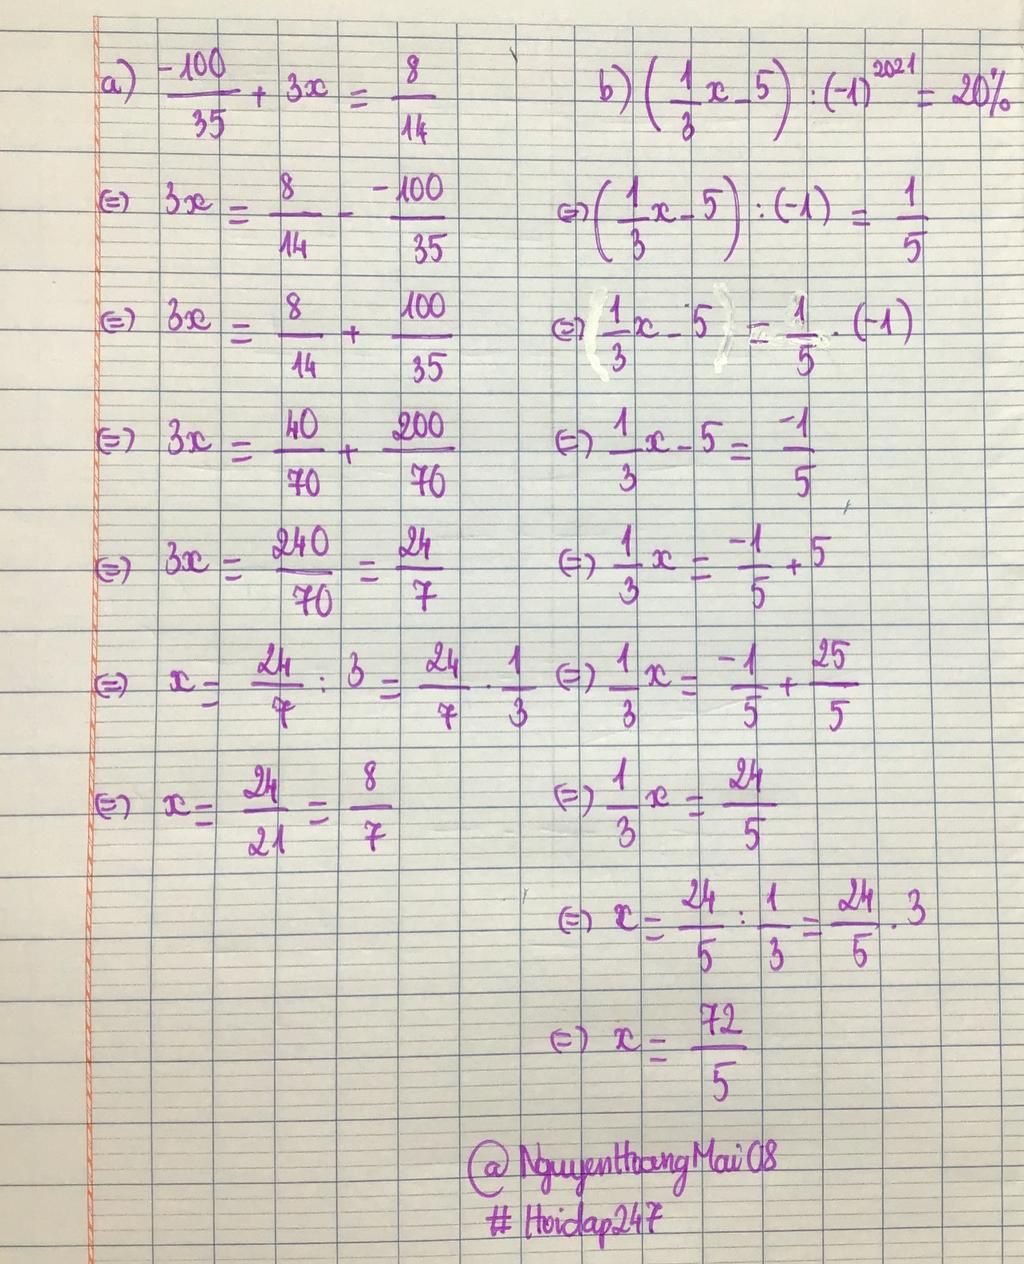 a) -100/35 + 3x = 8/14
⇔ 3x = 8/14 - -100/35
⇔ 3x = 8/14 + 100/35
⇔ 3x = 40/70 + 200/70
⇔ 3x = 240/70 = 24/7
⇔ x = 24/7 : 3 = 24/7 . 1/3
⇔ x = 24/21 = 8/7
b) (1/3 x - 5) : (-1)^2021 = 20%
⇔ (1/3 x - 5) : (-1) = 1/5
⇔ (1/3 x - 5) = 1/5 . (-1)
⇔ 1/3 x - 5 = -1/5
⇔ 1/3 x = -1/5 + 5
⇔ 1/3 x = -1/5 + 25/5
⇔ 1/3 x = 24/5
⇔ x = 24/5 : 1/3 = 24/5 . 3
⇔ x = 72/5
@NguyenHoangMai08
# Hoidap247